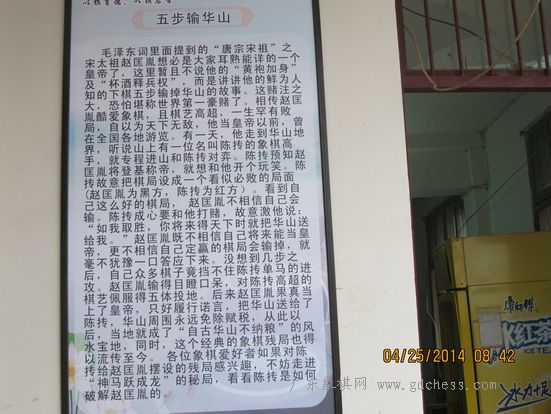 以棋育德、以棋启智
五步输华山
毛泽东词里面提到的“唐宗宋祖”之
宋太祖赵匡胤想必是大家耳熟能详的一个
皇帝了，这里暂且不说他的“黄袍加身”
及“杯酒释兵权”，而是讲讲他的鲜为人
知的下棋五步输掉华山的故事。这赌注之
大，恐怕堪称世界第一豪赌了。相传赵匡
胤酷爱象棋，且棋艺高超，一生罕有败
局，自以为天下无敌，他当皇帝以前，曾
在全国各地游览。有一天，他走到华山地
界，听说山上有一位名叫陈抟的象棋高
手，就专程进山和陈抟对弈。陈抟预知赵
匡胤将登基称帝，就想和他开个玩笑。陈
抟故意把棋局设成一个看似必败的局面
(赵匡胤为黑方，陈抟为红方）。看到自
己这么好的棋局，赵匡胤不相信自己会
输。陈抟成心要和他打赌，故意激他说：
“如我取胜，你将来得天下时就把华山送
给我。”赵匡胤既不相信自己将来能当皇
帝，更不相信自己定赢的棋局会输掉，就
毫不犹豫一口答应下来。没想到几步之
后，自己众多棋子竟挡不住陈抟单马的进
攻。赵匡胤输得目瞪口呆，对陈抟高超的
棋艺佩服得五体投地。后来赵匡胤果真当
上了皇帝，只好履行诺言，把华山送给了
陈抟，华山周围永远免除赋税，从此以
后，当地就成了“自古华山不纳粮”的风
水宝地，同时，这个经典的象棋残局也得
以流传至今。各位象棋爱好者如果对陈
抟“神马跃成龙”的残局感兴趣，不妨走进
破解赵匡胤的
康师傅
红茶
ICE TE
冰力十足
04/25/2014 08:42
广东象棋网 www.gdchess.com